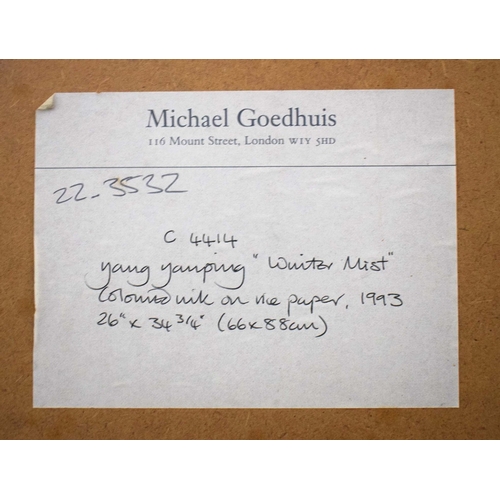 Michael Goedhuis
116 Mount Street, London W1Y 5HD
22-3532
C 4414
Yang Yanping "Winter Mist"
Coloured ink on rice paper, 1993
26" x 34 3/4" (66x88cm)